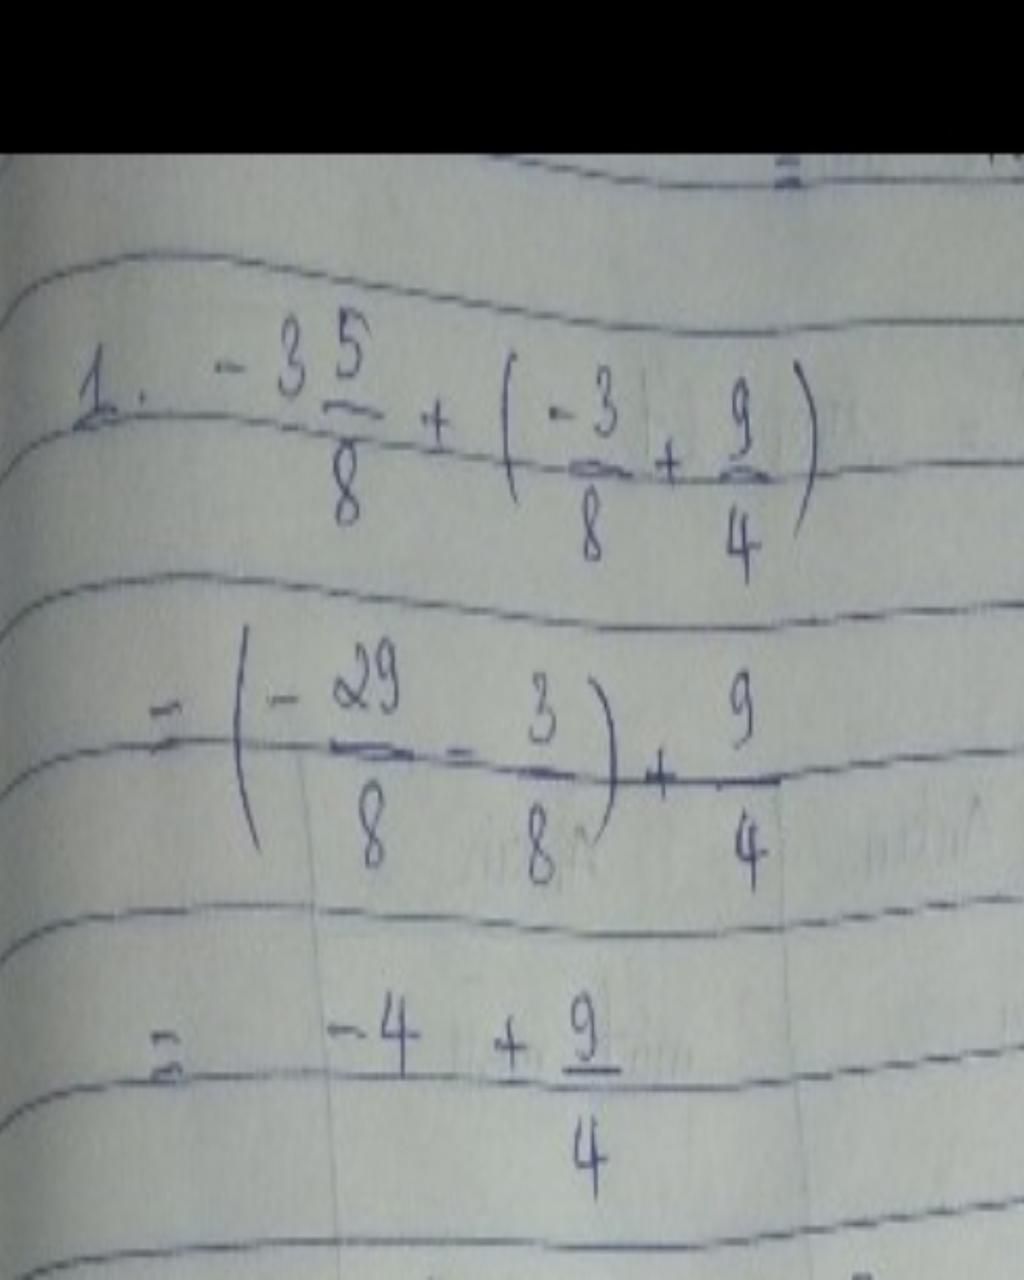 1. -3 5/8 + (-3/8 + 9/4)
= (-29/8 - 3/8) + 9/4
= -4 + 9/4